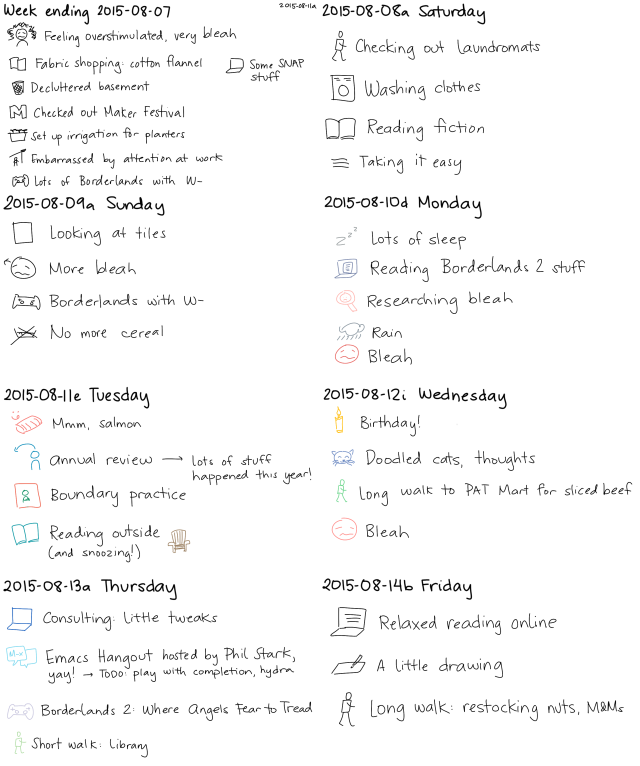 Week ending 2015-08-07
2015-08-11a
Feeling overstimulated, very bleah
Fabric shopping: cotton flannel
Some SNAP
stuff
Decluttered basement
Checked out Maker Festival
Set up irrigation for planters
Embarrassed by attention at work
Lots of Borderlands with W-
2015-08-08a Saturday
Checking out laundromats
Washing clothes
Reading fiction
Taking it easy
2015-08-09a Sunday
Looking at tiles
More bleah
Borderlands with W-
No more cereal
2015-08-10d Monday
zzz
Lots of sleep
Reading Borderlands 2 stuff
Researching bleah
Rain
Bleah
2015-08-11e Tuesday
Mmm, salmon
Annual review → lots of stuff
happened this year!
Boundary practice
Reading outside
(and snoozing!)
2015-08-12i Wednesday
Birthday!
Doodled cats, thoughts
Long walk to PAT Mart for sliced beef
Bleah
2015-08-13a Thursday
Consulting: Little tweaks
M-x
Emacs Hangout hosted by Phil Stark,
yay! → TODO: play with completion, hydra
Borderlands 2: Where Angels Fear to Tread
Short walk: Library
2015-08-14b Friday
Relaxed reading online
A little drawing
Long walk: restocking nuts, M&Ms